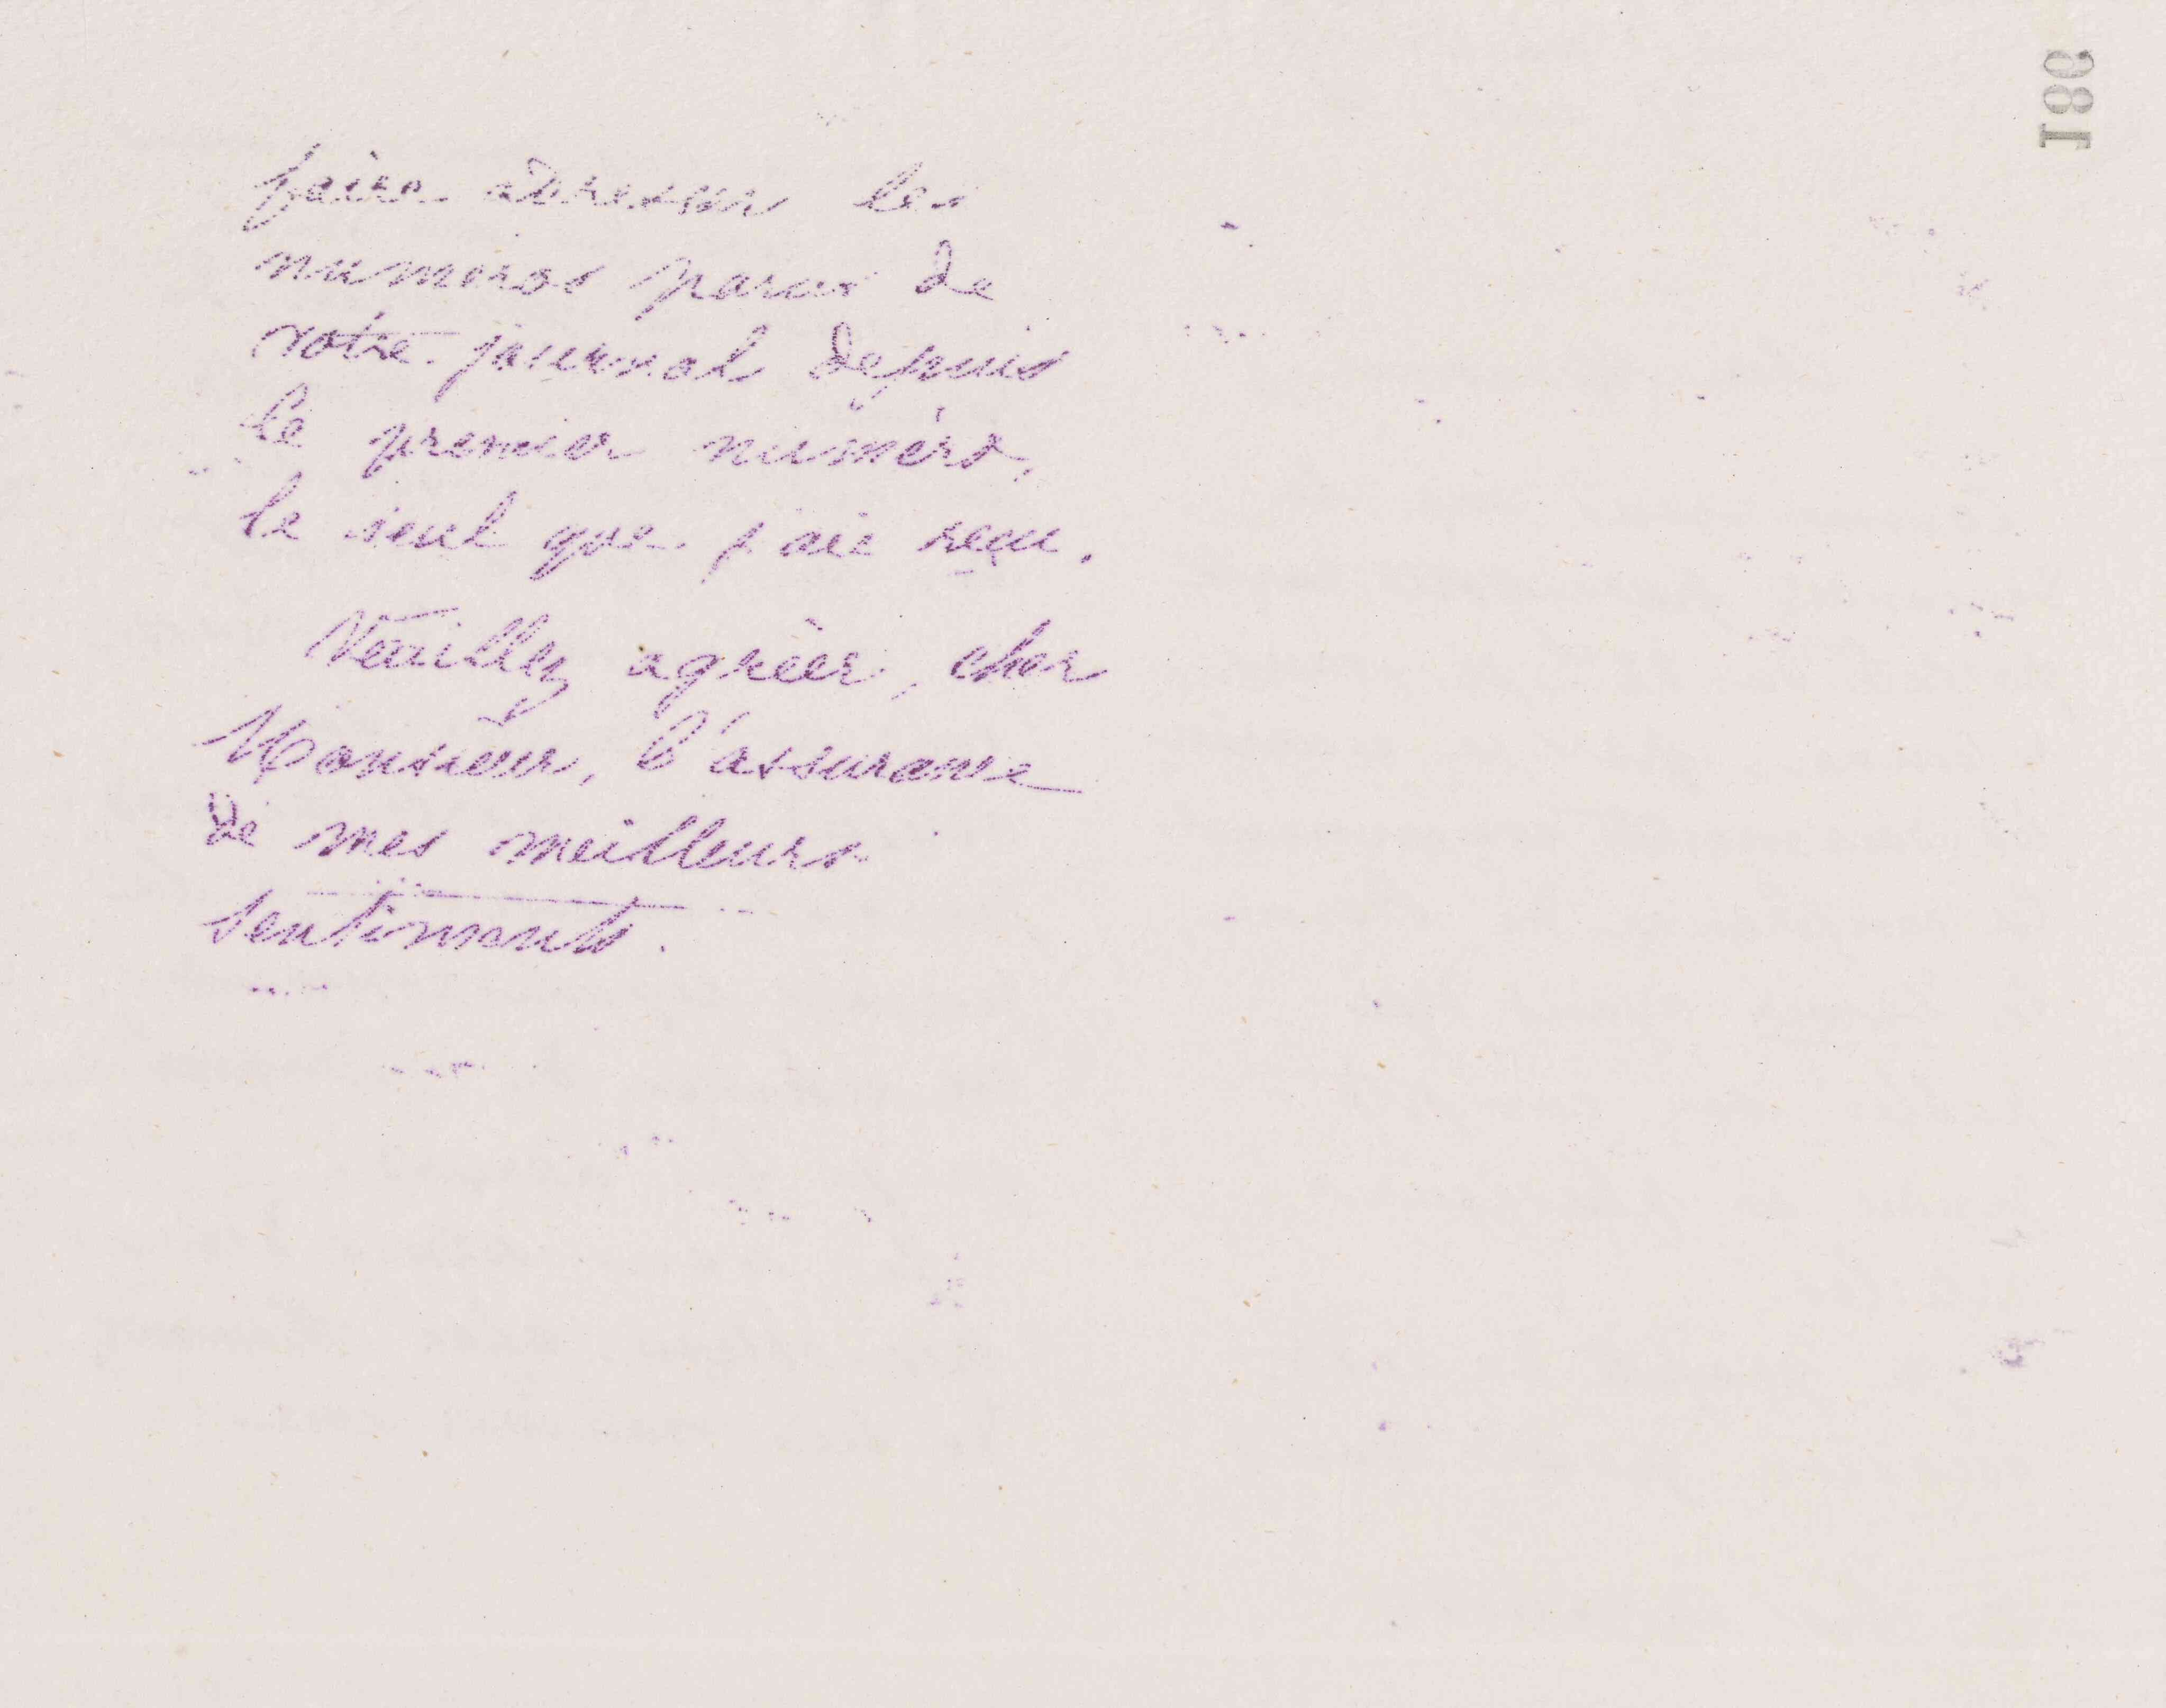 186
faire adresser les
numeros parus de
votre journal depuis
le premier numéro,
le seul que j'aie reçu.
Veuillez agréer, cher
Monsieur, l'assurance
de mes meilleurs
sentiments.